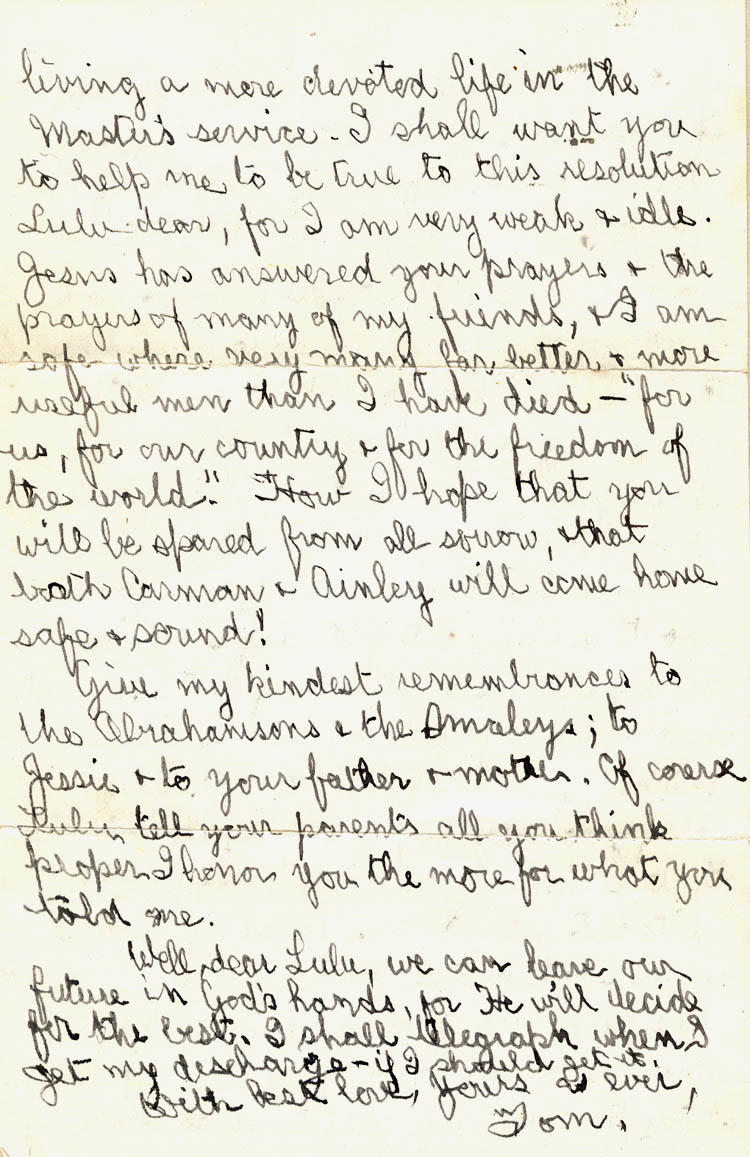 living a more devoted life in the
Master's service - I shall want you
to help me to be true to this resolution
Lulu dear, for I am very weak & idle.
Jesus has answered your prayers & the
prayers of many of my friends, & I am
safe where very many far better & more
useful men than I have died - "for
us, for our country & for the freedom of
the world". How I hope that you
will be spared from all sorrow, & that
both Carman & Ainley will come home
safe & sound!
Give my kindest remembrances to
the Abrahamsons & the Smaleys; to
Jessie & to your father & mother. Of course
Lulu, tell your parents all you think
proper. I honor you the more for what you
told me.
Well, dear Lulu, we can leave our
future in God's hands, for He will decide
for the best. I shall telegraph when I
get my discharge - if I should get it.
With best love, yours as ever,
Tom.